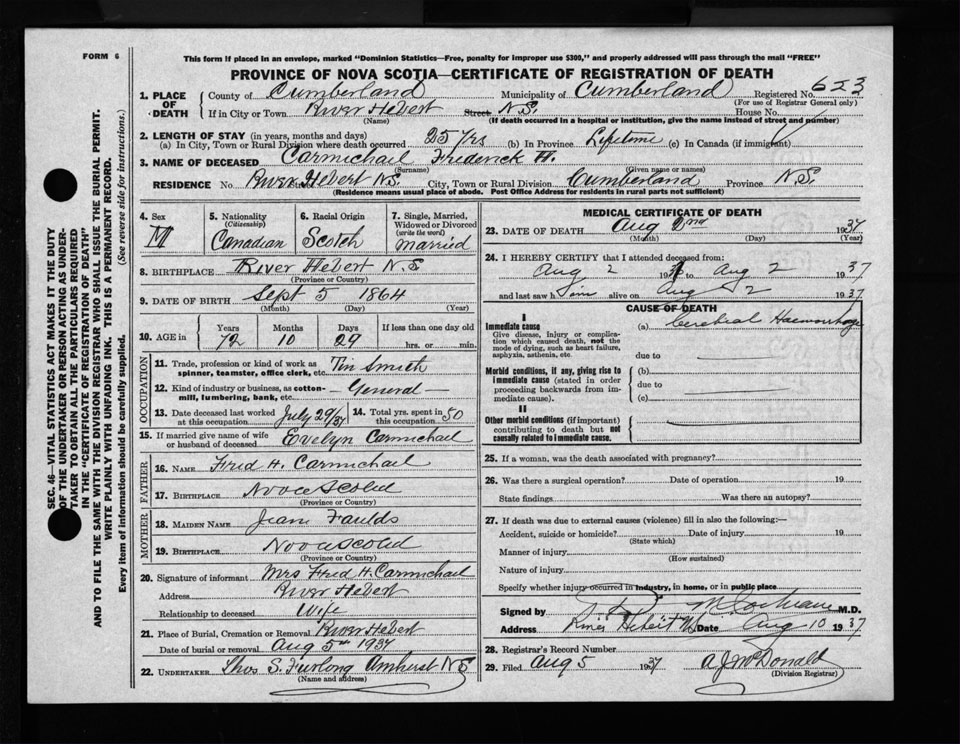 FORM 6
This form if placed in an envelope, marked "Dominion Statistics—Free, penalty for improper use $300," and properly addressed will pass through the mail "FREE"
PROVINCE OF NOVA SCOTIA—CERTIFICATE OF REGISTRATION OF DEATH
SEC. 46—VITAL STATISTICS ACT MAKES IT THE DUTY
OF THE UNDERTAKER OR PERSON ACTING AS UNDER-
TAKER TO OBTAIN ALL THE PARTICULARS REQUIRED
IN THE "CERTIFICATE OF REGISTRATION OF DEATH"
AND TO FILE THE SAME WITH THE DIVISION REGISTRAR WHO SHALL ISSUE THE BURIAL PERMIT.
WRITE PLAINLY WITH UNFADING INK. THIS IS A PERMANENT RECORD.
Every item of information should be carefully supplied. (See reverse side for instructions.)
1. PLACE OF DEATH County of Cumberland Municipality of Cumberland Registered No. 623
(For use of Registrar General only)
If in City or Town River Hebert Street N.S. House No.
(Name) (If death occurred in a hospital or institution, give the name instead of street and number)
2. LENGTH OF STAY (in years, months and days)
(a) In City, Town or Rural Division where death occurred 25 yrs (b) In Province Lifetime (c) In Canada (if immigrant)
3. NAME OF DECEASED Carmichael Frederick H.
(Surname) (Given name or names)
RESIDENCE No. River Hebert N.S. City, Town or Rural Division Cumberland Province N.S.
(Residence means usual place of abode. Post Office Address for residents in rural parts not sufficient)
4. Sex M
5. Nationality (Citizenship) Canadian
6. Racial Origin Scotch
7. Single, Married, Widowed or Divorced (write the word) Married
8. BIRTHPLACE River Hebert N.S
(Province or Country)
9. DATE OF BIRTH Sept 5 1864
(Month) (Day) (Year)
10. AGE in Years 72 Months 10 Days 29 If less than one day old hrs. or min.
OCCUPATION
11. Trade, profession or kind of work as spinner, teamster, office clerk, etc. Tin Smith
12. Kind of industry or business, as cotton-mill, lumbering, bank, etc. General
13. Date deceased last worked at this occupation July 29/37 14. Total yrs. spent in this occupation 50
15. If married give name of wife or husband of deceased Evelyn Carmichael
FATHER
16. NAME Fred H. Carmichael
17. BIRTHPLACE Nova Scotia
(Province or Country)
MOTHER
18. MAIDEN NAME Jean Faulds
19. BIRTHPLACE Nova Scotia
(Province or Country)
20. Signature of informant Mrs Fred H. Carmichael
Address River Hebert
Relationship to deceased Wife
21. Place of Burial, Cremation or Removal River Hebert
Date of burial or removal Aug 5th 1937
22. UNDERTAKER Thos S. Furlong Amherst N.S
(Name and address)
MEDICAL CERTIFICATE OF DEATH
23. DATE OF DEATH Aug 2nd 1937
(Month) (Day) (Year)
24. I HEREBY CERTIFY that I attended deceased from:
Aug 2 193 to Aug 2 1937
and last saw him alive on Aug 2 1937.
CAUSE OF DEATH
I
Immediate cause (a) Cerebral Haemorrhage
Give disease, injury or complication which caused death, not the mode of dying, such as heart failure, asphyxia, asthenia, etc.
due to
Morbid conditions, if any, giving rise to immediate cause (stated in order proceeding backwards from immediate cause). (b)
due to
(c)
II
Other morbid conditions (if important) contributing to death but not causally related to immediate cause.
25. If a woman, was the death associated with pregnancy?
26. Was there a surgical operation? Date of operation 19
State findings Was there an autopsy?
27. If death was due to external causes (violence) fill in also the following:—
Accident, suicide or homicide? Date of injury 19
(State which)
Manner of injury
(How sustained)
Nature of injury
Specify whether injury occurred in industry, in home, or in public place
Signed by Cochrane M.D.
Address River Hebert Date Aug 10 1937
28. Registrar's Record Number
29. Filed Aug 5 1937 A J McDonald
(Division Registrar)